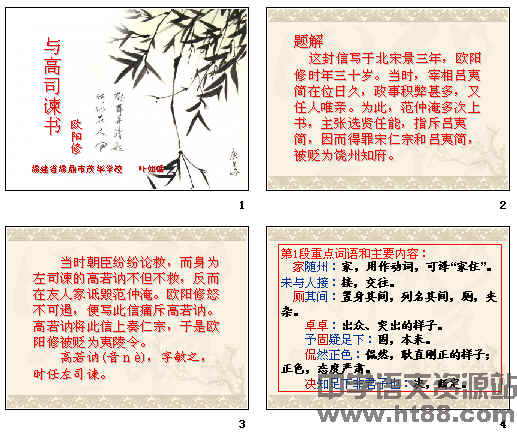 与高司谏书
欧阳修
1
题解
这封信写于北宋景三年，欧阳
修时年三十岁。当时，宰相吕夷
简在位日久，政事积弊甚多，又
任人唯亲。为此，范仲淹多次上
书，主张选贤任能，指斥吕夷
简，因而得罪宋仁宗和吕夷简，
被贬为饶州知府。
2
当时朝臣纷纷论救，而身为
左司谏的高若讷不但不救，反而
在友人家诋毁范仲淹。欧阳修怒
不可遏，便写此信痛斥高若讷。
高若讷将此信上奏仁宗，于是欧
阳修被贬为夷陵令。
高若讷(音nè)，字敏之，
时任左司谏。
3
第1段重点词语和主要内容：
家随州：家，用作动词，可译“家住”。
未与人接：接，交往。
厕其间：置身其间，列名其间，厕，夹
杂。
卓卓：出众、突出的样子。
予固疑足下：固，本来。
侃然正色：侃然，耿直刚正的样子；
正色，态度严肃。
决知足下非君子也：决，断定。
4
中学语文资源站
www.ht88.com